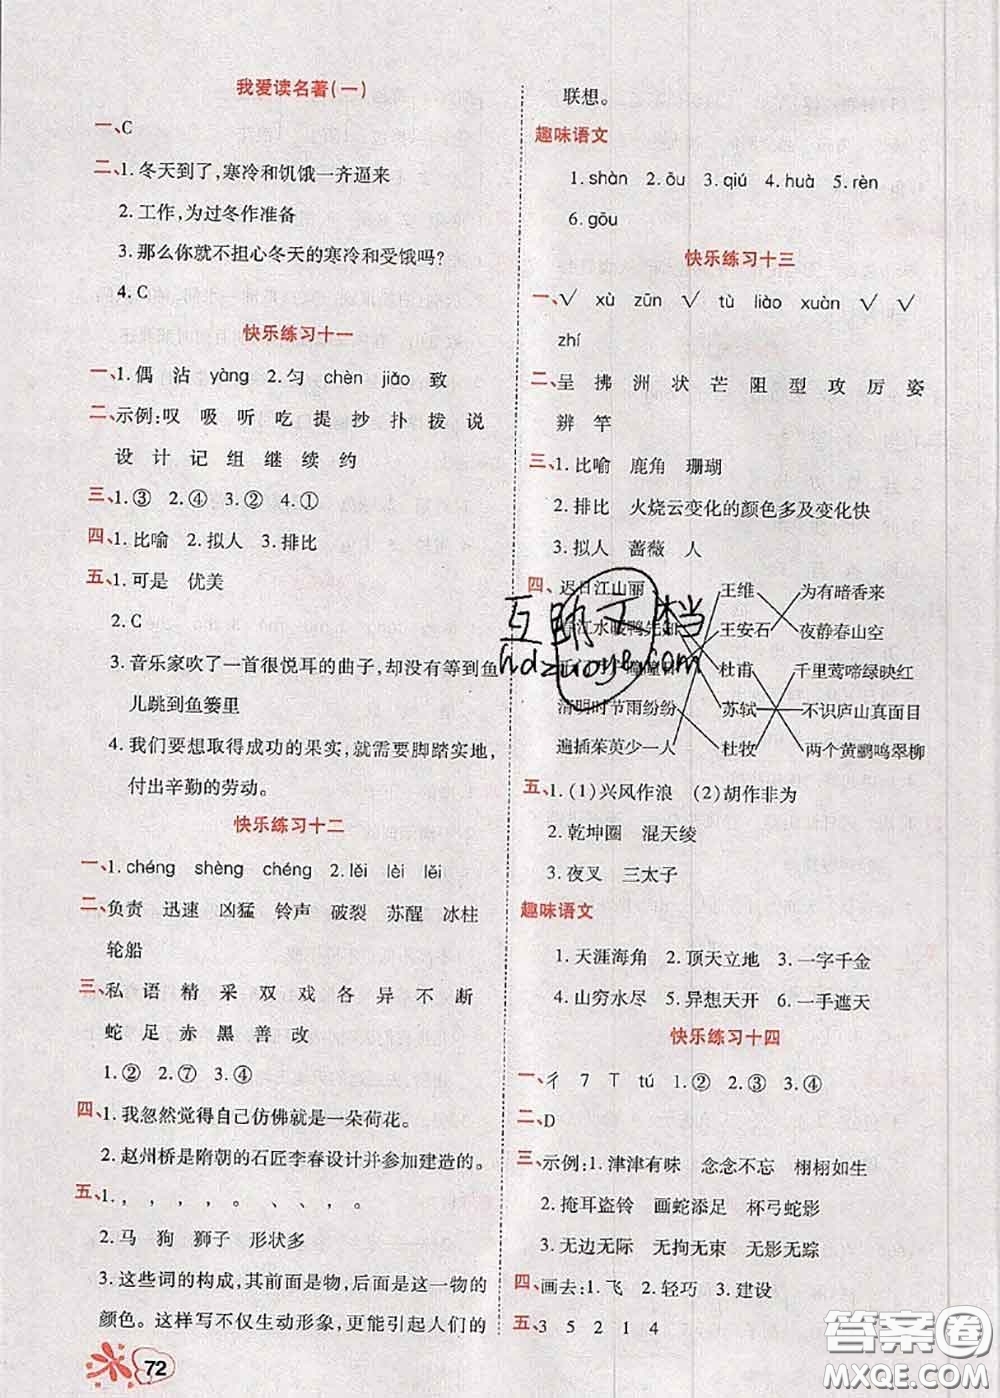 我爱读名著(一)
一、C
二、1. 冬天到了,寒冷和饥饿一齐逼来
2. 工作,为过冬作准备
3. 那么你就不担心冬天的寒冷和受饿吗?
4. C
快乐练习十一
一、1. 偶 沾 yàng 2. 匀 chèn jiǎo 致
二、示例:叹 吸 听 吃 提 抄 扑 拨 说
设 计 记 组 继 续 约
三、1. ③ 2. ④ 3. ② 4. ①
四、1. 比喻 2. 拟人 3. 排比
五、1. 可是 优美
2. C
3. 音乐家吹了一首很悦耳的曲子,却没有等到鱼
儿跳到鱼篓里
4. 我们要想取得成功的果实,就需要脚踏实地,
付出辛勤的劳动。
快乐练习十二
一、1. chéng shèng chéng 2. lěi lèi lěi
二、负责 迅速 凶猛 铃声 破裂 苏醒 冰柱
轮船
三、私 语 精 采 双 戏 各 异 不 断
蛇 足 赤 黑 善 改
1. ② 2. ⑦ 3. ④
四、1. 我忽然觉得自己仿佛就是一朵荷花。
2. 赵州桥是隋朝的石匠李春设计并参加建造的。
五、1. , , , , 。 、 、 , 。
2. 马 狗 狮子 形状多
3. 这些词的构成,其前面是物,后面是这一物的
颜色。这样写不仅生动形象,更能引起人们的
72
联想。
趣味语文
1. shàn 2. ōu 3. qiú 4. huà 5. rèn
6. gōu
快乐练习十三
一、√ xù zūn √ tù liào xuàn √ √
zhí
二、呈 拂 洲 状 芒 阻 型 攻 厉 姿
辨 竿
三、1. 比喻 鹿角 珊瑚
2. 排比 火烧云变化的颜色多及变化快
3. 拟人 蔷薇 人
四、迟日江山丽 王维 为有暗香来
春江水暖鸭先知 王安石 夜静春山空
曈曈日 杜甫 千里莺啼绿映红
清明时节雨纷纷 苏轼 不识庐山真面目
遍插茱萸少一人 杜牧 两个黄鹂鸣翠柳
互助文档
hdzuoye.com
五、1. (1)兴风作浪 (2)胡作非为
2. 乾坤圈 混天绫
3. 夜叉 三太子
趣味语文
1. 天涯海角 2. 顶天立地 3. 一字千金
4. 山穷水尽 5. 异想天开 6. 一手遮天
快乐练习十四
一、彳 7 T tú 1. ② 2. ③ 3. ②
二、D
三、示例:1. 津津有味 念念不忘 栩栩如生
2. 掩耳盗铃 画蛇添足 杯弓蛇影
3. 无边无际 无拘无束 无影无踪
四、画去:1. 飞 2. 轻巧 3. 建设
五、3 5 2 1 4
答案圈
MXQE.COM